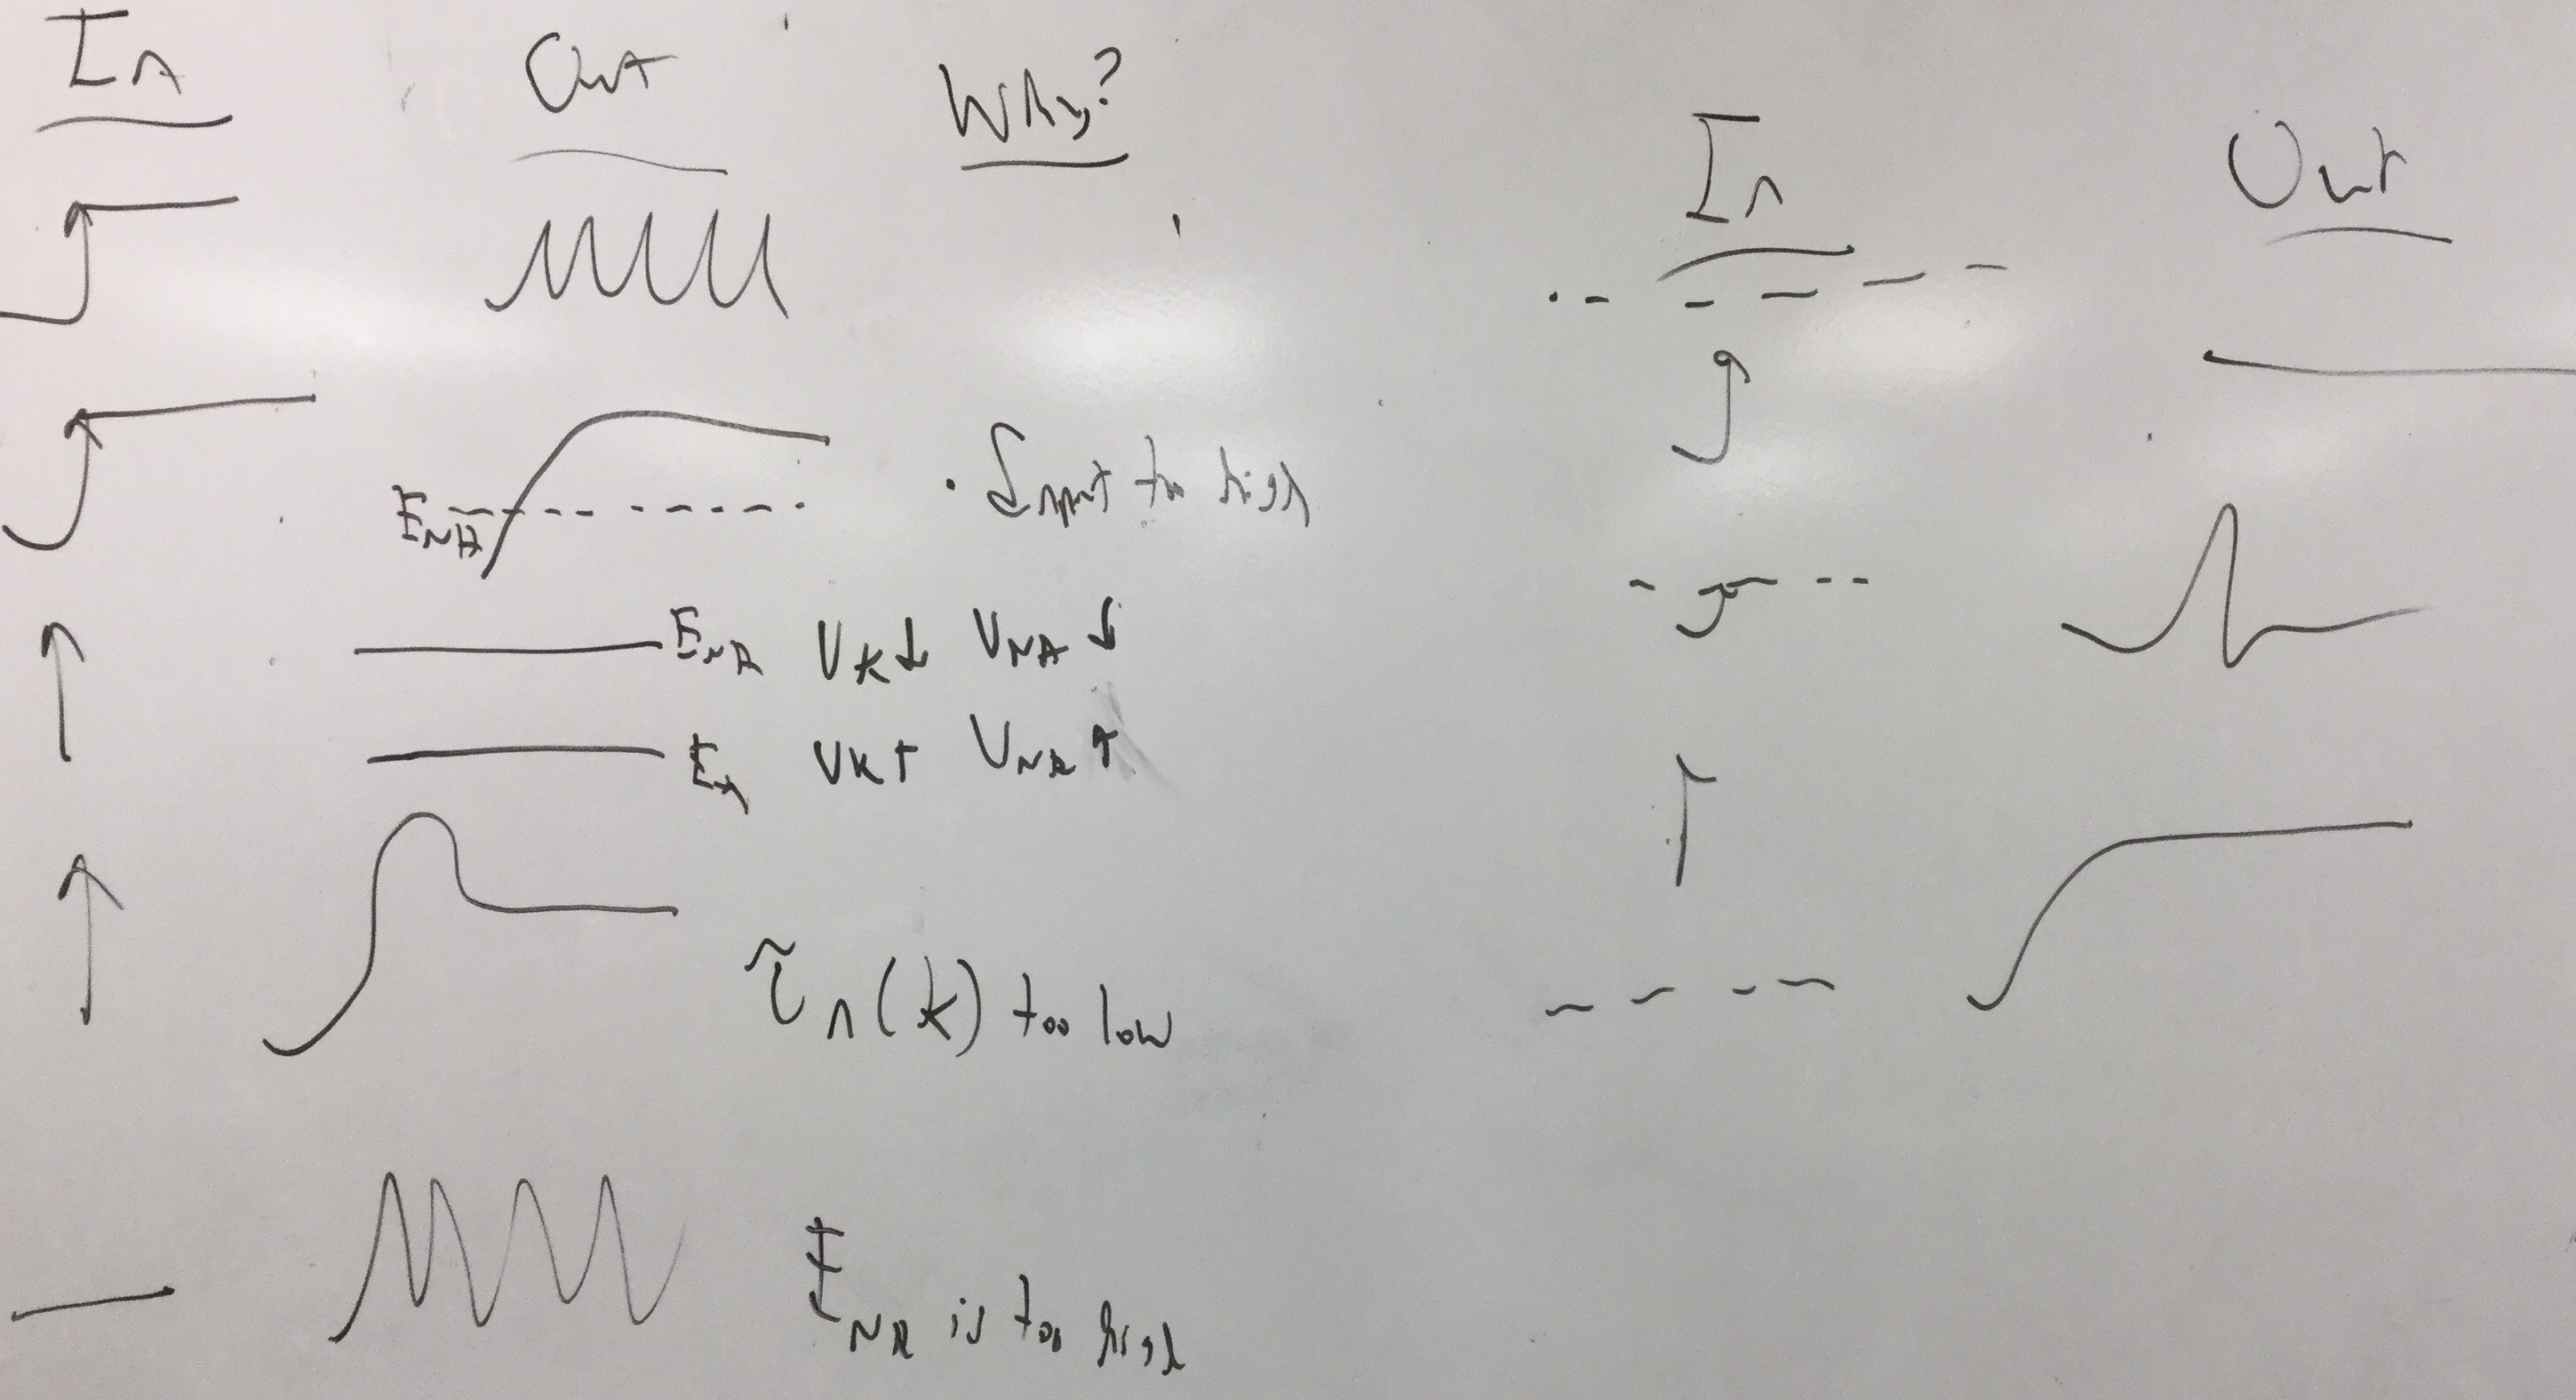 In Out Why?
In Out
ENA
· Input too high
ENA VK↓ VNA↓
EK VK↑ VNA↑
τn(k) too low
ENA is too high